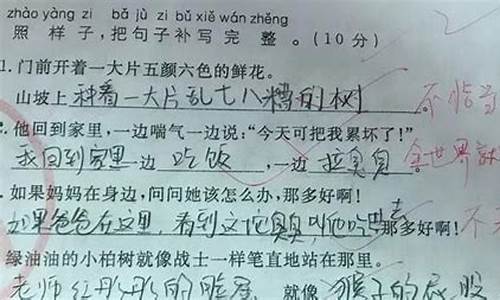 zhào yàng zi bǎ jù zi bǔ xiě wán zhěng
照 样 子，把 句 子 补 写 完 整 。（10 分）
1. 门前开着一大片五颜六色的鲜花。
山坡上 种着一大片乱七八糟的树 。
2. 他回到家里，一边喘气一边说：“今天可把我累坏了！”
我回到家里一边 吃饭 ，一边 拉臭臭
. 如果妈妈在身边，问问她该怎么办，那多好啊！
如果爸爸在这里，看到这坨臭臭叫他吃 去 那多好啊！
绿油油的小柏树就像战士一样笔直地站在那里。
老师红彤彤的脸蛋 就像 猴子的屁股